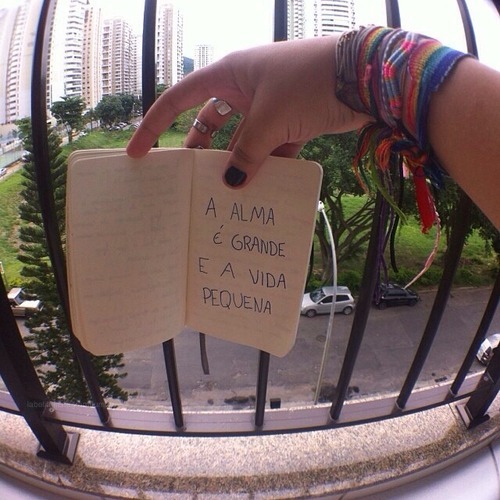 A ALMA
é GRANDE
E A VIDA
PEQUENA